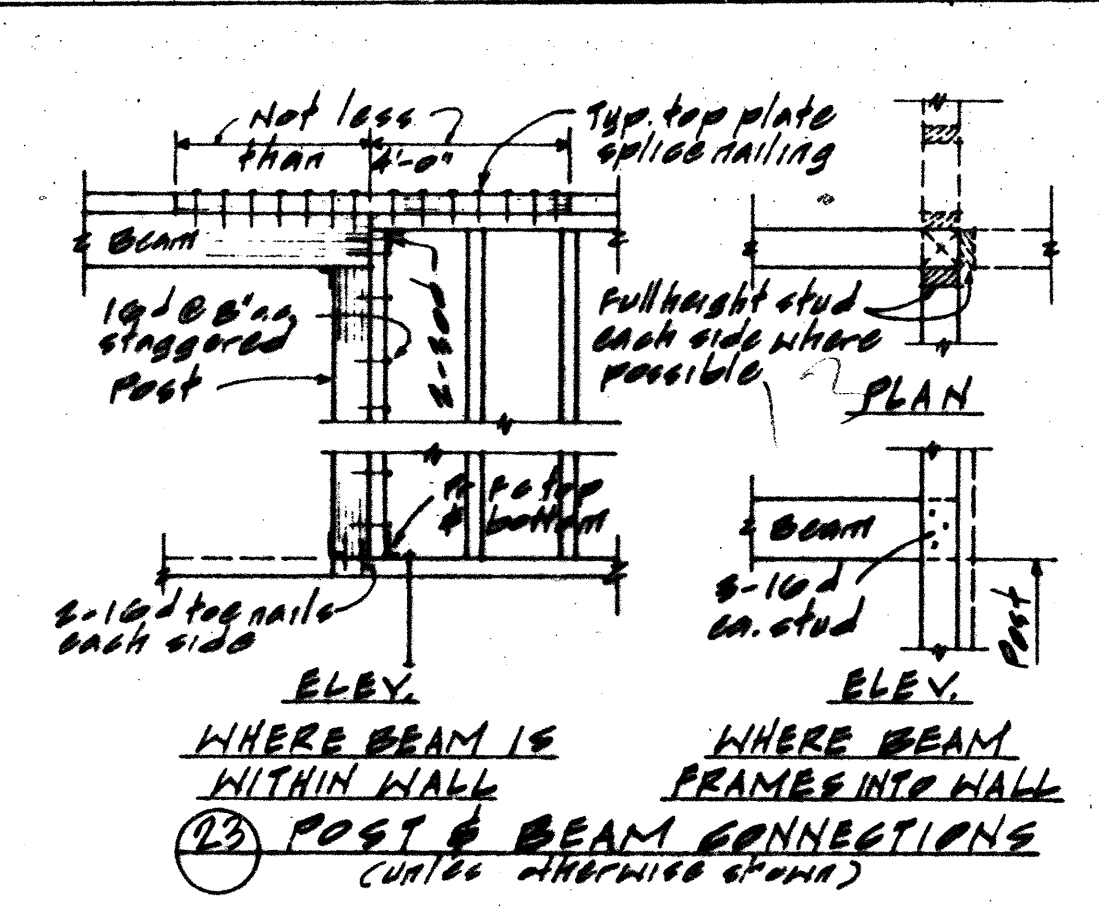 Not less
than 4'-0"
Typ. top plate
splice nailing
Beam
16d @ 8" o.c.
staggered
Post
2-30d
Full height stud
each side where
possible
PLAN
top
& bottom
2-16d toe nails
each side
Beam
3-16d
ea. stud
Post
ELEV.
WHERE BEAM IS
WITHIN WALL
ELEV.
WHERE BEAM
FRAMES INTO WALL
23 POST & BEAM CONNECTIONS
(unles otherwise shown)